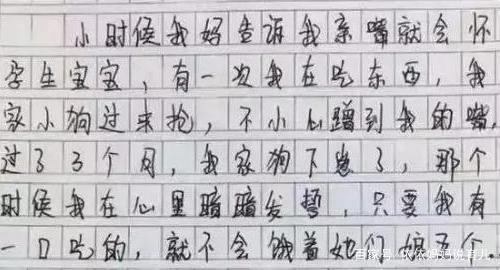 小时候我妈告诉我亲嘴就会怀
孕生宝宝,有一次我在吃东西,我
家小狗过来抢,不小心蹭到我的嘴,
过了3个月,我家狗下崽了,那个
时候我在心里暗暗发誓,只要我有
一口吃的,就不会饿着她们娘5个
百家号/依依妈妈说育儿